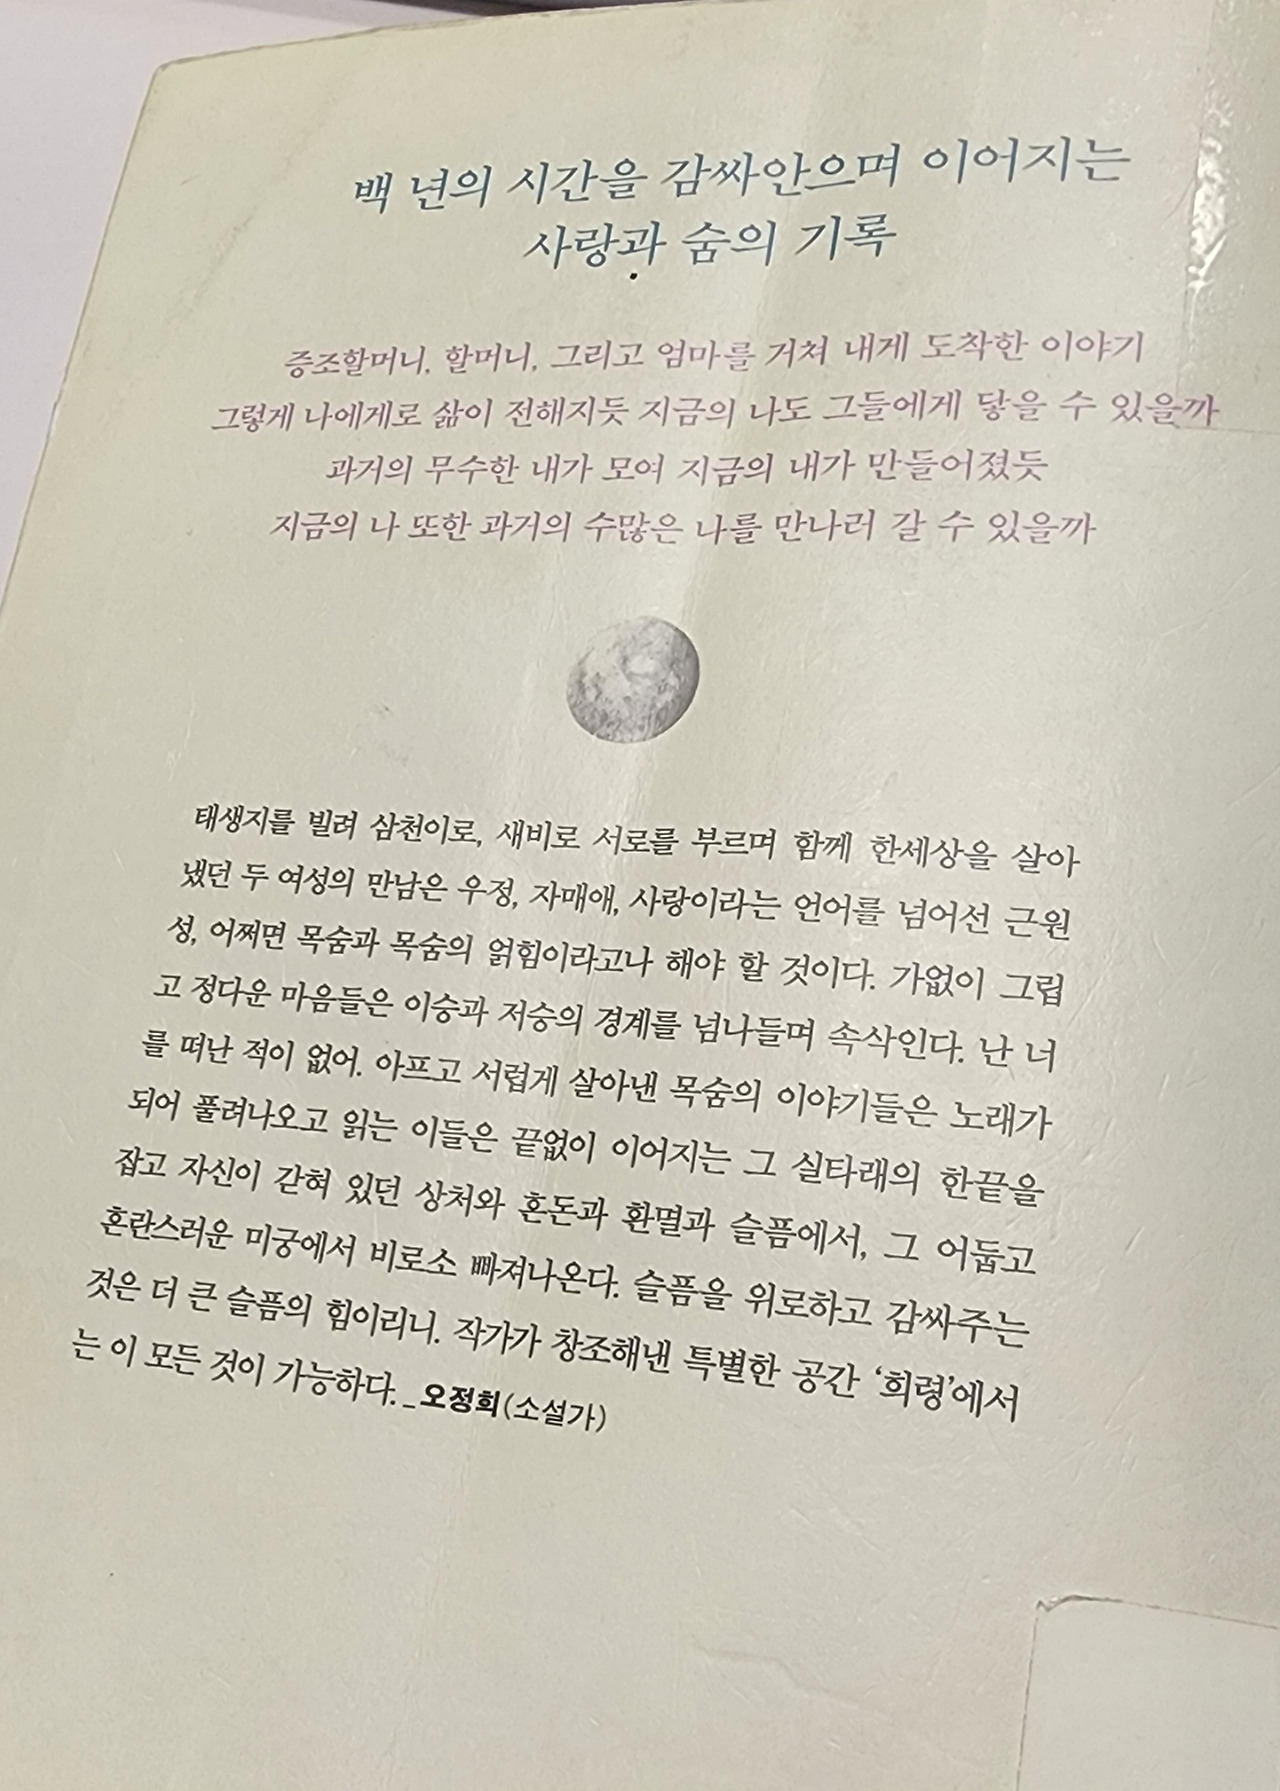 백 년의 시간을 감싸안으며 이어지는
사랑과 숨의 기록
증조할머니, 할머니, 그리고 엄마를 거쳐 내게 도착한 이야기
그렇게 나에게로 삶이 전해지듯 지금의 나도 그들에게 닿을 수 있을까
과거의 무수한 내가 모여 지금의 내가 만들어졌듯
지금의 나 또한 과거의 수많은 나를 만나러 갈 수 있을까
태생지를 빌려 삼천이로, 새비로 서로를 부르며 함께 한세상을 살아
냈던 두 여성의 만남은 우정, 자매애, 사랑이라는 언어를 넘어선 근원
성, 어쩌면 목숨과 목숨의 얽힘이라고나 해야 할 것이다. 가없이 그립
고 정다운 마음들은 이승과 저승의 경계를 넘나들며 속삭인다. 난 너
를 떠난 적이 없어. 아프고 서럽게 살아낸 목숨의 이야기들은 노래가
되어 풀려나오고 읽는 이들은 끝없이 이어지는 그 실타래의 한끝을
잡고 자신이 갇혀 있던 상처와 혼돈과 환멸과 슬픔에서, 그 어둡고
혼란스러운 미궁에서 비로소 빠져나온다. 슬픔을 위로하고 감싸주는
것은 더 큰 슬픔의 힘이리니. 작가가 창조해낸 특별한 공간 ‘희령’에서
는 이 모든 것이 가능하다. _오정희(소설가)